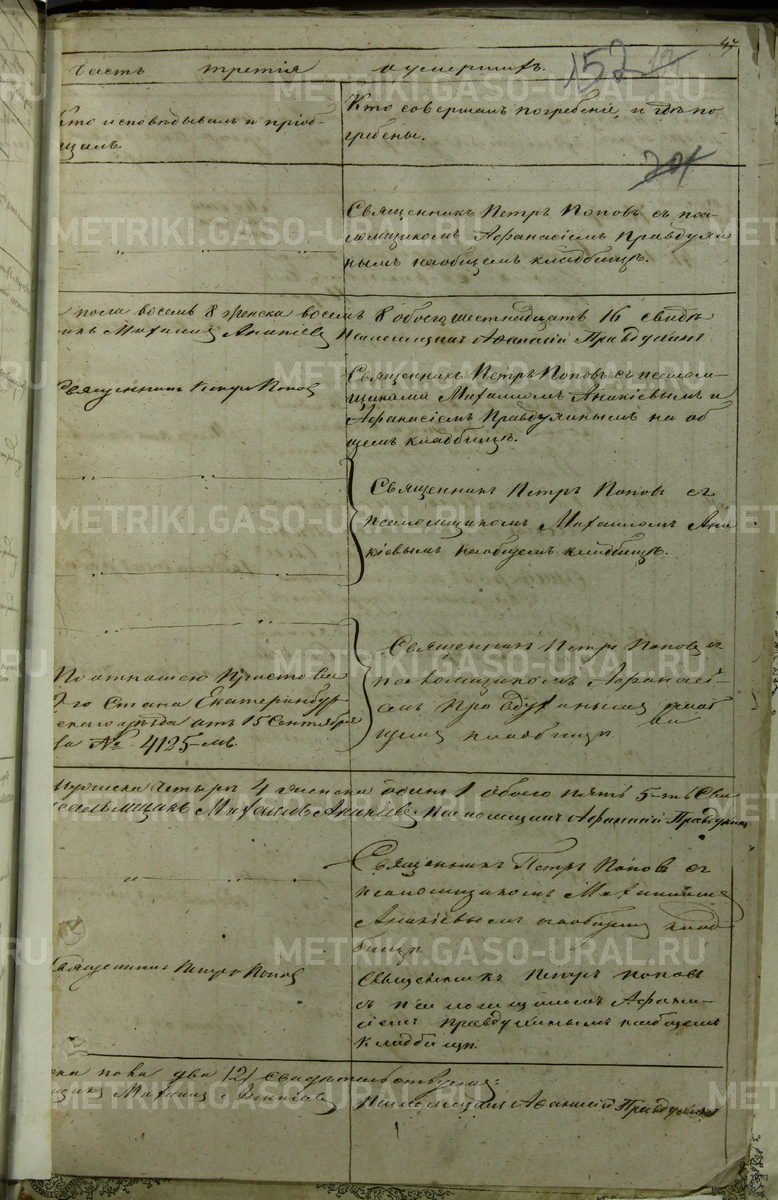 47
Часть третія о умершихъ.
152
Кто исповѣдывалъ и пріоб-
щалъ.
Кто совершалъ погребеніе и гдѣ по
гребены.
201
Священникъ Петръ Поповъ съ пса-
ломщикомъ Афанасіемъ Правдухи
нымъ на общемъ кладбищѣ.
пола восемь 8 женска восемь 8 обоего шестнадцать 16 свидѣ
Михаилъ Ананіевъ Псаломщикъ Афанасій Правдухинъ
Священникъ Петръ Поповъ
Священникъ Петръ Поповъ съ псалом-
щиками Михаиломъ Ананіевымъ и
Афанасіемъ Правдухинымъ на об
щемъ кладбищѣ.
Священникъ Петръ Поповъ съ
псаломщикомъ Михаиломъ Ана
ніевымъ на общемъ кладбищѣ.
Священникъ Петръ Поповъ съ
псаломщикомъ Афанасі-
емъ Правдухинымъ на об
щемъ кладбищѣ
По отношею Пристава
го Стана Екатеринбур-
скаго уѣзда отъ 15 Сентября
за № 4125-мъ.
мужска четыре 4 женска одинъ 1 обоего пять 5-ть Сви
Михаилъ Ананіевъ Псаломщикъ Афанасій Правдухинъ
Священникъ Петръ Поповъ съ
псаломщикомъ Михаиломъ
Ананіевымъ на общемъ клад
бищѣ
Священникъ Петръ Поповъ
Священникъ Петръ Поповъ
съ псаломщикомъ Афана-
сіемъ Правдухинымъ на общемъ
кладбищѣ.
пола два /2/ свидѣтельствуемъ:
Михаилъ Ананіевъ Псаломщикъ Афанасій Правдухинъ
METRIKI.GASO-URAL.RU